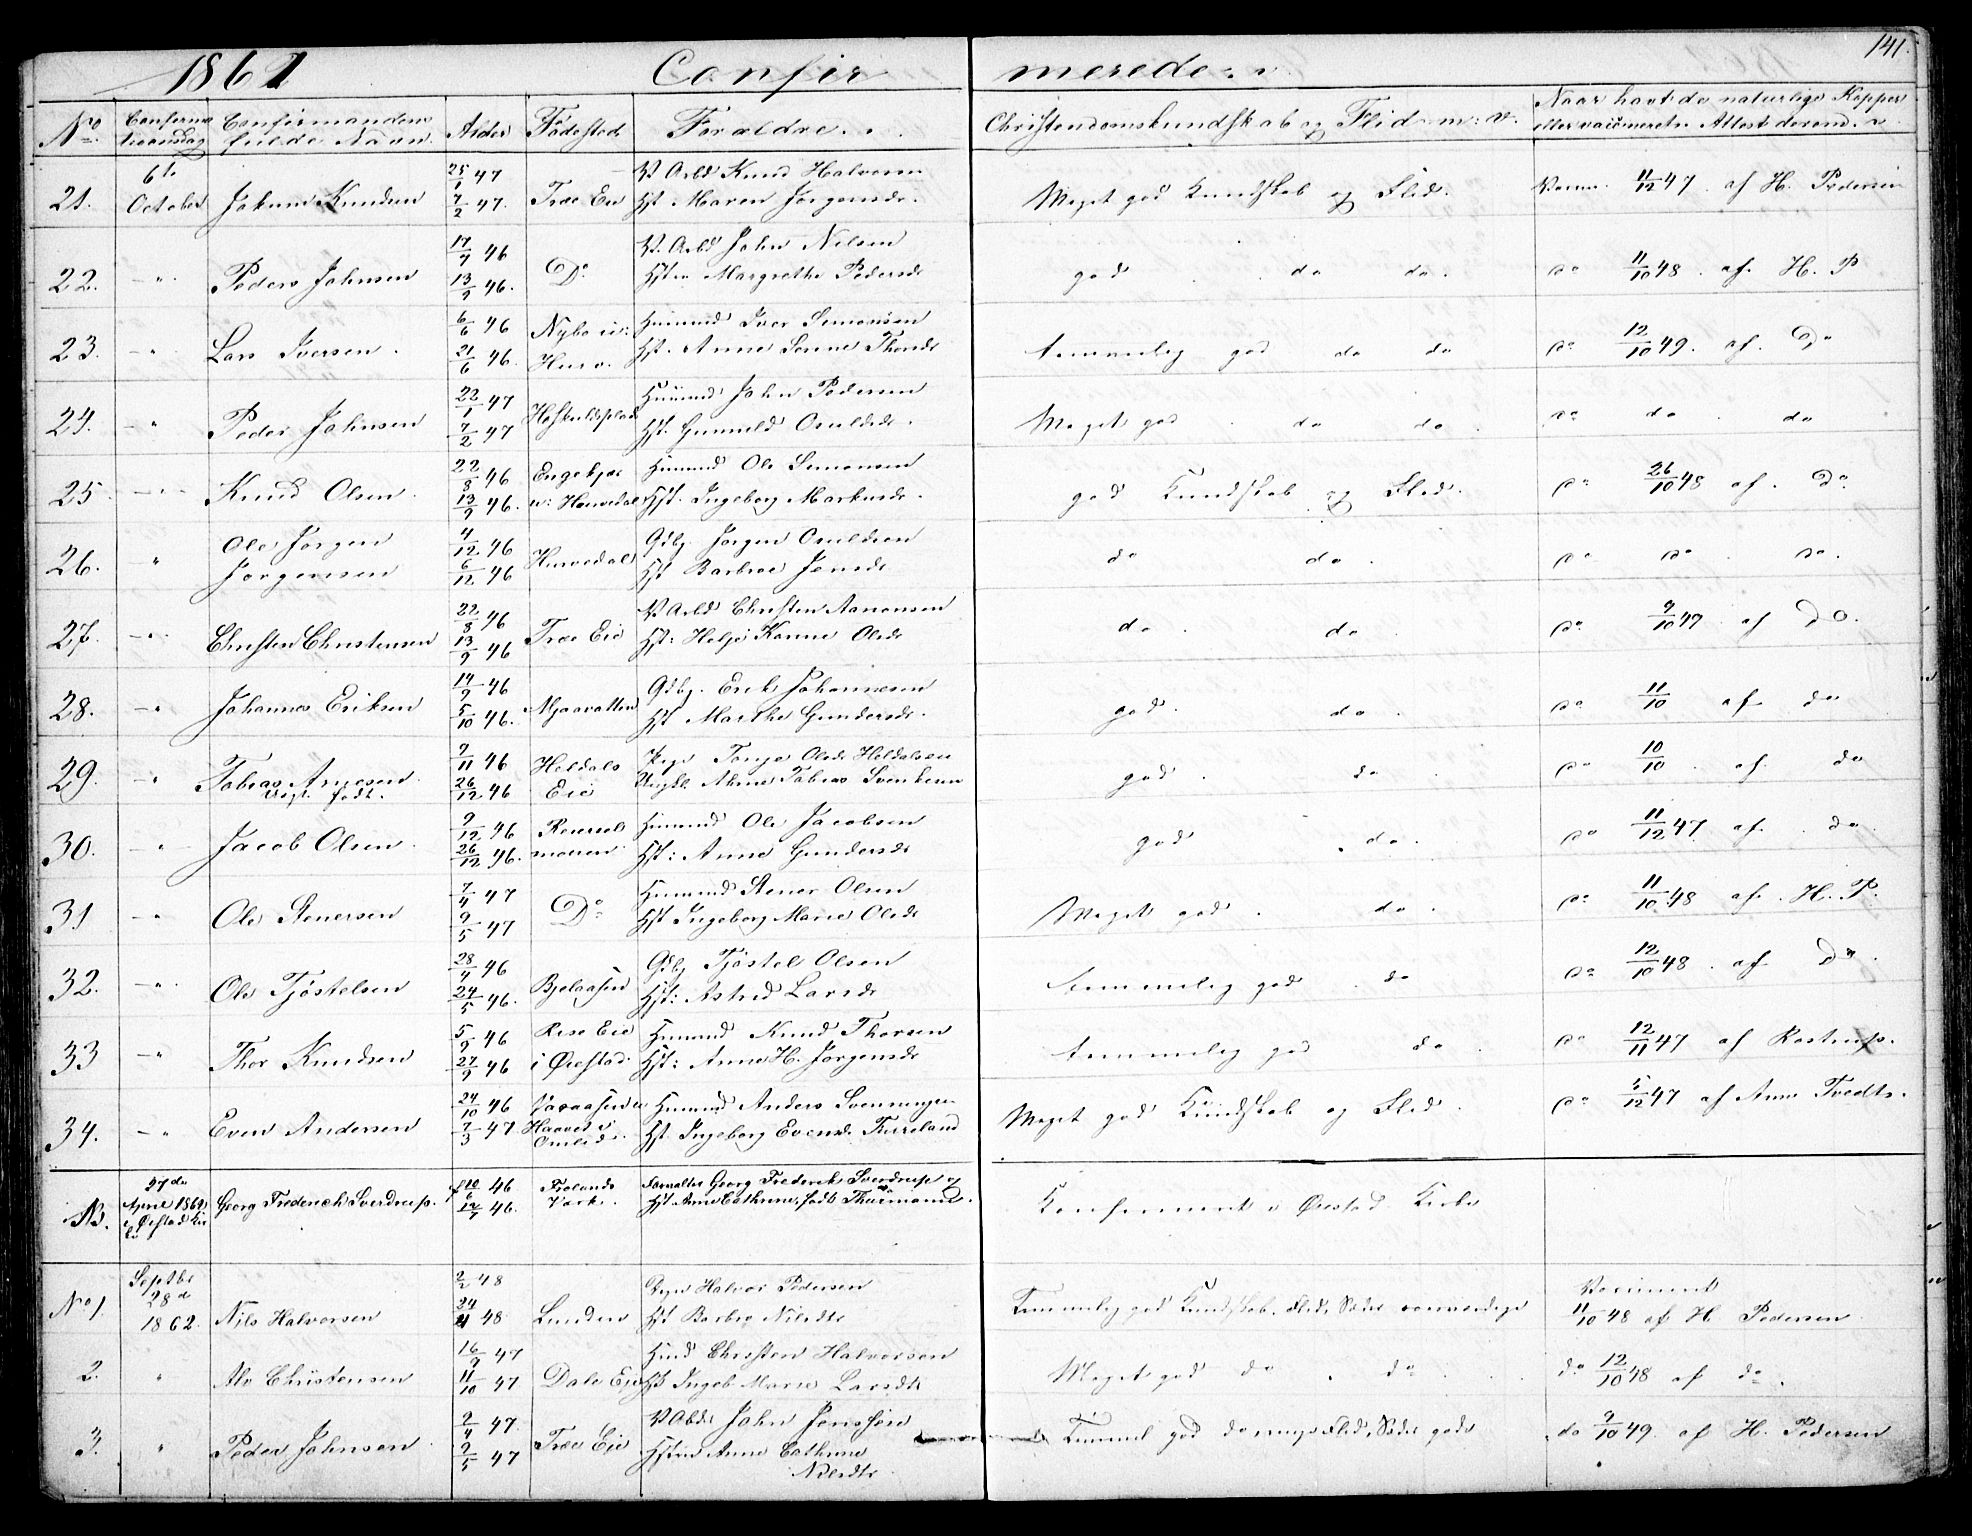 141.
1861 Confir merede
No Confirmationsdag Confirmandens fulde Navn Alder Fødested Forældre Christendomskundskab og Flid m: v. Naar havt de naturlige Kopper eller vaccineret. Attest derom
21. 6te October Jakum Knudsen 25/1 47 7/2 47. Træe Eie V. Arbd Knud Halvorsen Hst Maren Jørgensdr. Meget god Kundskab og Flid. Vacc. 11/12 47 af H. Pedersen
22. " Peders Johnsen 17/7 46 13/9 46. Do V. Arbd John Nilsen Hst Margrethe Pedersdr god do do. do 11/10 48 af H. P
23. " Lars Iversen 6/6 46 21/6 46. Nybo Huusmd Iver Simonsen Hst. Anne Temmelig god do do do 12/10 49. af. Do
24. " Peder Johnsen 22/1 47 7/2 47 Huusmd John Pedersen Hst. Gunnild Osuldsdr. Meget god do do do do do
25 " Knud Olsen 22/8 46 13/9 46. Engekjær Huusmd Ole Simonsen Hst. Ingeborg Markusdr. god Kundskab og Flid. do 26/10 48 af. Do
26. " Ole Jørgen Jørgensen 4/12 46 6/12 46 Hurvedal Gdbg. Jørgen Osuldsen Hst Barbroe Jensdr do do. do do do.
27. " Christen Christensen 22/8 46 13/9 46 Træe Eie V Arbd Christen Aanonsen Hst: Helje Karine Olsdr do do. do 9/10 47 af Do.
28. " Johannes Eriksen 14/9 46 5/10 46. Mjaavatten Gdbg. Erik Johannesen Hst Marthe Gundersdr. god do. do 11/10 af do
29. " Tobias Arnesen uægt. født. 9/11 46 26/12 46 Heldals Eie Pige Tonje Olsdr Heldalseie god. do do 10/10 . af. do
30. " Jacob Olsen 9/12 46 26/12 46. Huusmd Ole Jacobsen Hst: Anne Gundersdr god do. do 11/12 47 af. do
31 " Ole Stenersen 7/4 47 9/5 47 Do Huusmd Stener Olsen Hst Ingeborg Marie Olsdr Meget god. do. do 11/10 48 af. H. P.
32. " Ole Tjøstelsen 28/4 46 24/5 46. Bjelaasen Gdbg Tjøstel Olsen Hst: Astrid Larsdr Temmelig god do do 12/10 48. af do.
33 " Thor Knudsen 5/9 46 27/9 46 Rise Eie i Øiestad. Huusmd Knud Thorsen Hst: Anne H. Jørgensdr Temmelig god do. do 12/11 47 af Rostrup.
34. " Even Andersen 24/10 46 7/3 47 Huusmd Anders Svenningsen Hst. Ingeborg Evensdr Meget god Kundskab og Flid. do 5/12 47 af Tvedte.
NB. 27de April 1862 i Øiestad Kirke Georg Frederich Sverdrup. 46 46. Frolands Værk. Forvalter Georg Frederik Sverdrup og Hst. Anne Cathrine, født Thurmann. Konfirmeret i Øiestad Kirke
No 1. Septbr 28d 1862. Nils Halvorsen 2/2 48 48 Lunden Halvor Pedersen Hst Barbro Nilsdtr Temmelig god Kundskab. Flid, Vaccineret 11/10 48 af H Pedersen
2. " Alv Christensen 16/9 47 11/10 47 Dale Eje Hmd Christen Halvorsen Hst Ingeb Marie Larsdtr Meget god do do do 12/10 48 af do.
3. " Peder Johnsen 2/4 47. 9/5 47 Træe Eie V Abdr John Jenssøn Hstrue Anne Cathrine Nilsdtr Temmel god do do 9/10 49. af H. Pedersen